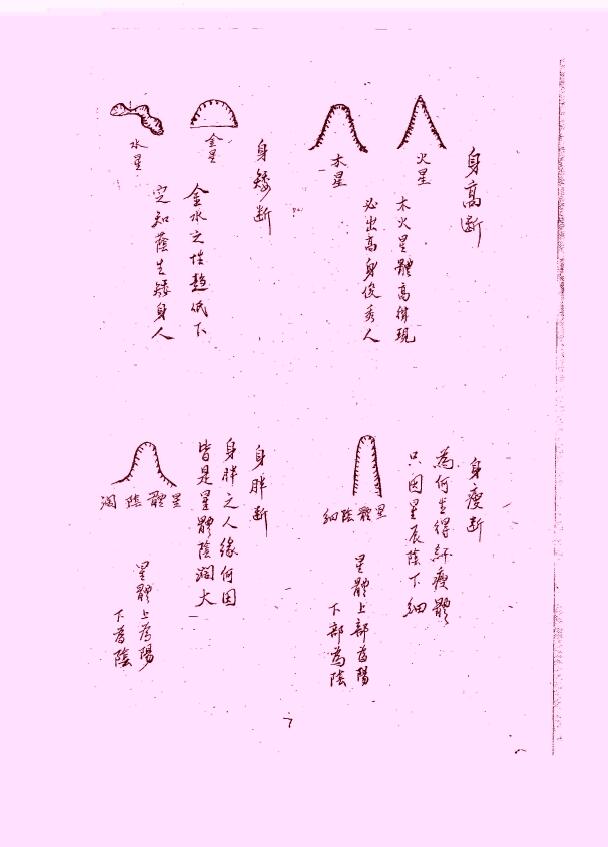 身高断
火星
木星
木火星體高得現
必出高身俊秀人
身矮断
金星
水星
金水之性趋低下
定知蔭生矮身人
身瘦断
為何生得 瘦體
只因星辰蔭下細
細陰體星
星體上部為陽
下部為陰
身胖断
身胖之人緣何因
皆是星體陰濶大
濶陰體星
星體上為陽
下為陰
7